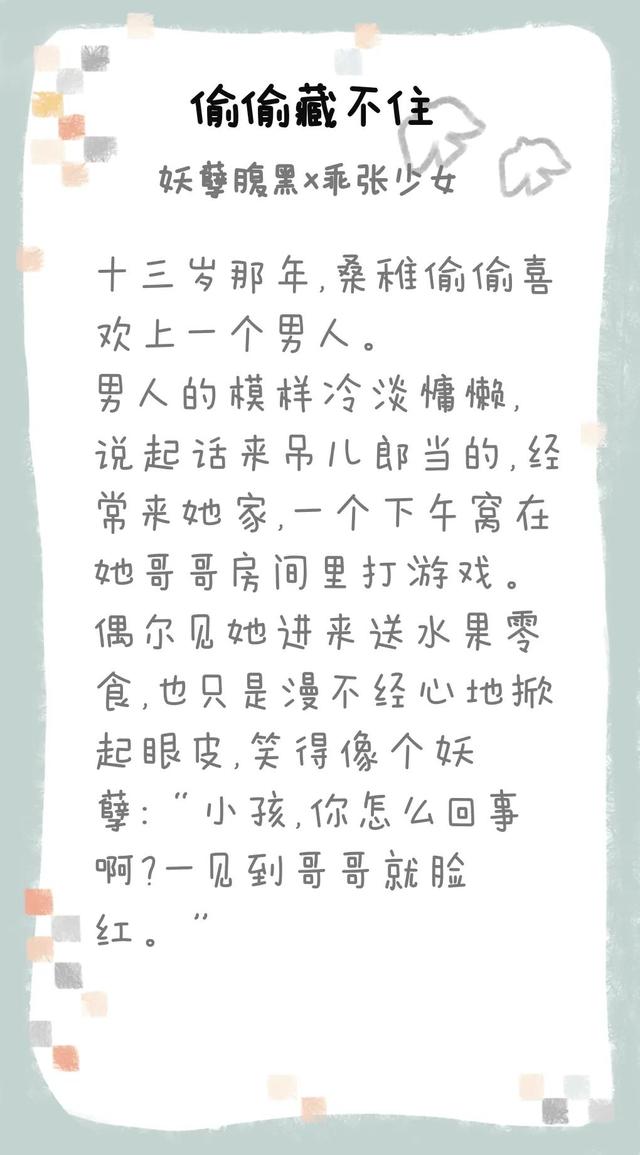 偷偷藏不住
妖孽腹黑x乖张少女
十三岁那年,桑稚偷偷喜
欢上一个男人。
男人的模样冷淡慵懒,
说起话来吊儿郎当的,经
常来她家,一个下午窝在
她哥哥房间里打游戏。
偶尔见她进来送水果零
食,也只是漫不经心地掀
起眼皮,笑得像个妖
孽:“小孩,你怎么回事
啊?一见到哥哥就脸
红。”